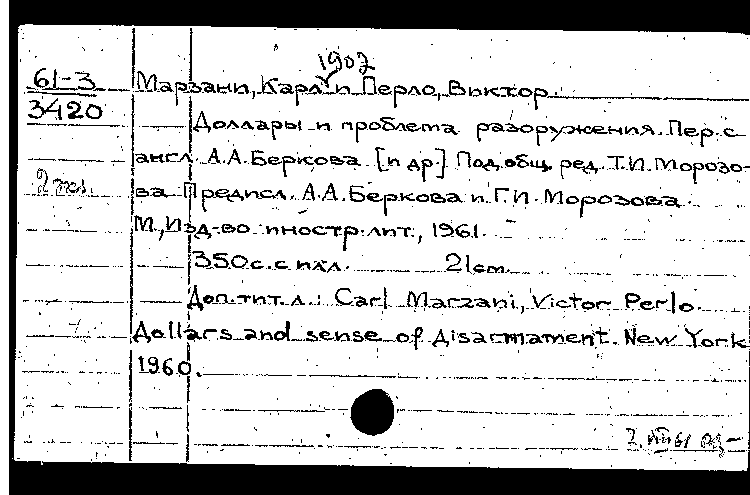 1907
61-3
3420
Марзани, Карл и Перло, Виктор.
Доллары и проблема разоружения. Пер. с
англ. А.А. Беркова [и др.] Под общ. ред. Г.И. Морозо-
ва Предисл. А.А. Беркова и Г.И. Морозова
М., Изд-во иностр. лит., 1961.
350 с. с илл. 21 cm.
Доп. тит. л.: Carl Marzani, Victor Perlo.
Dollars and sense of disarmament. New York
1960.
2 экз.